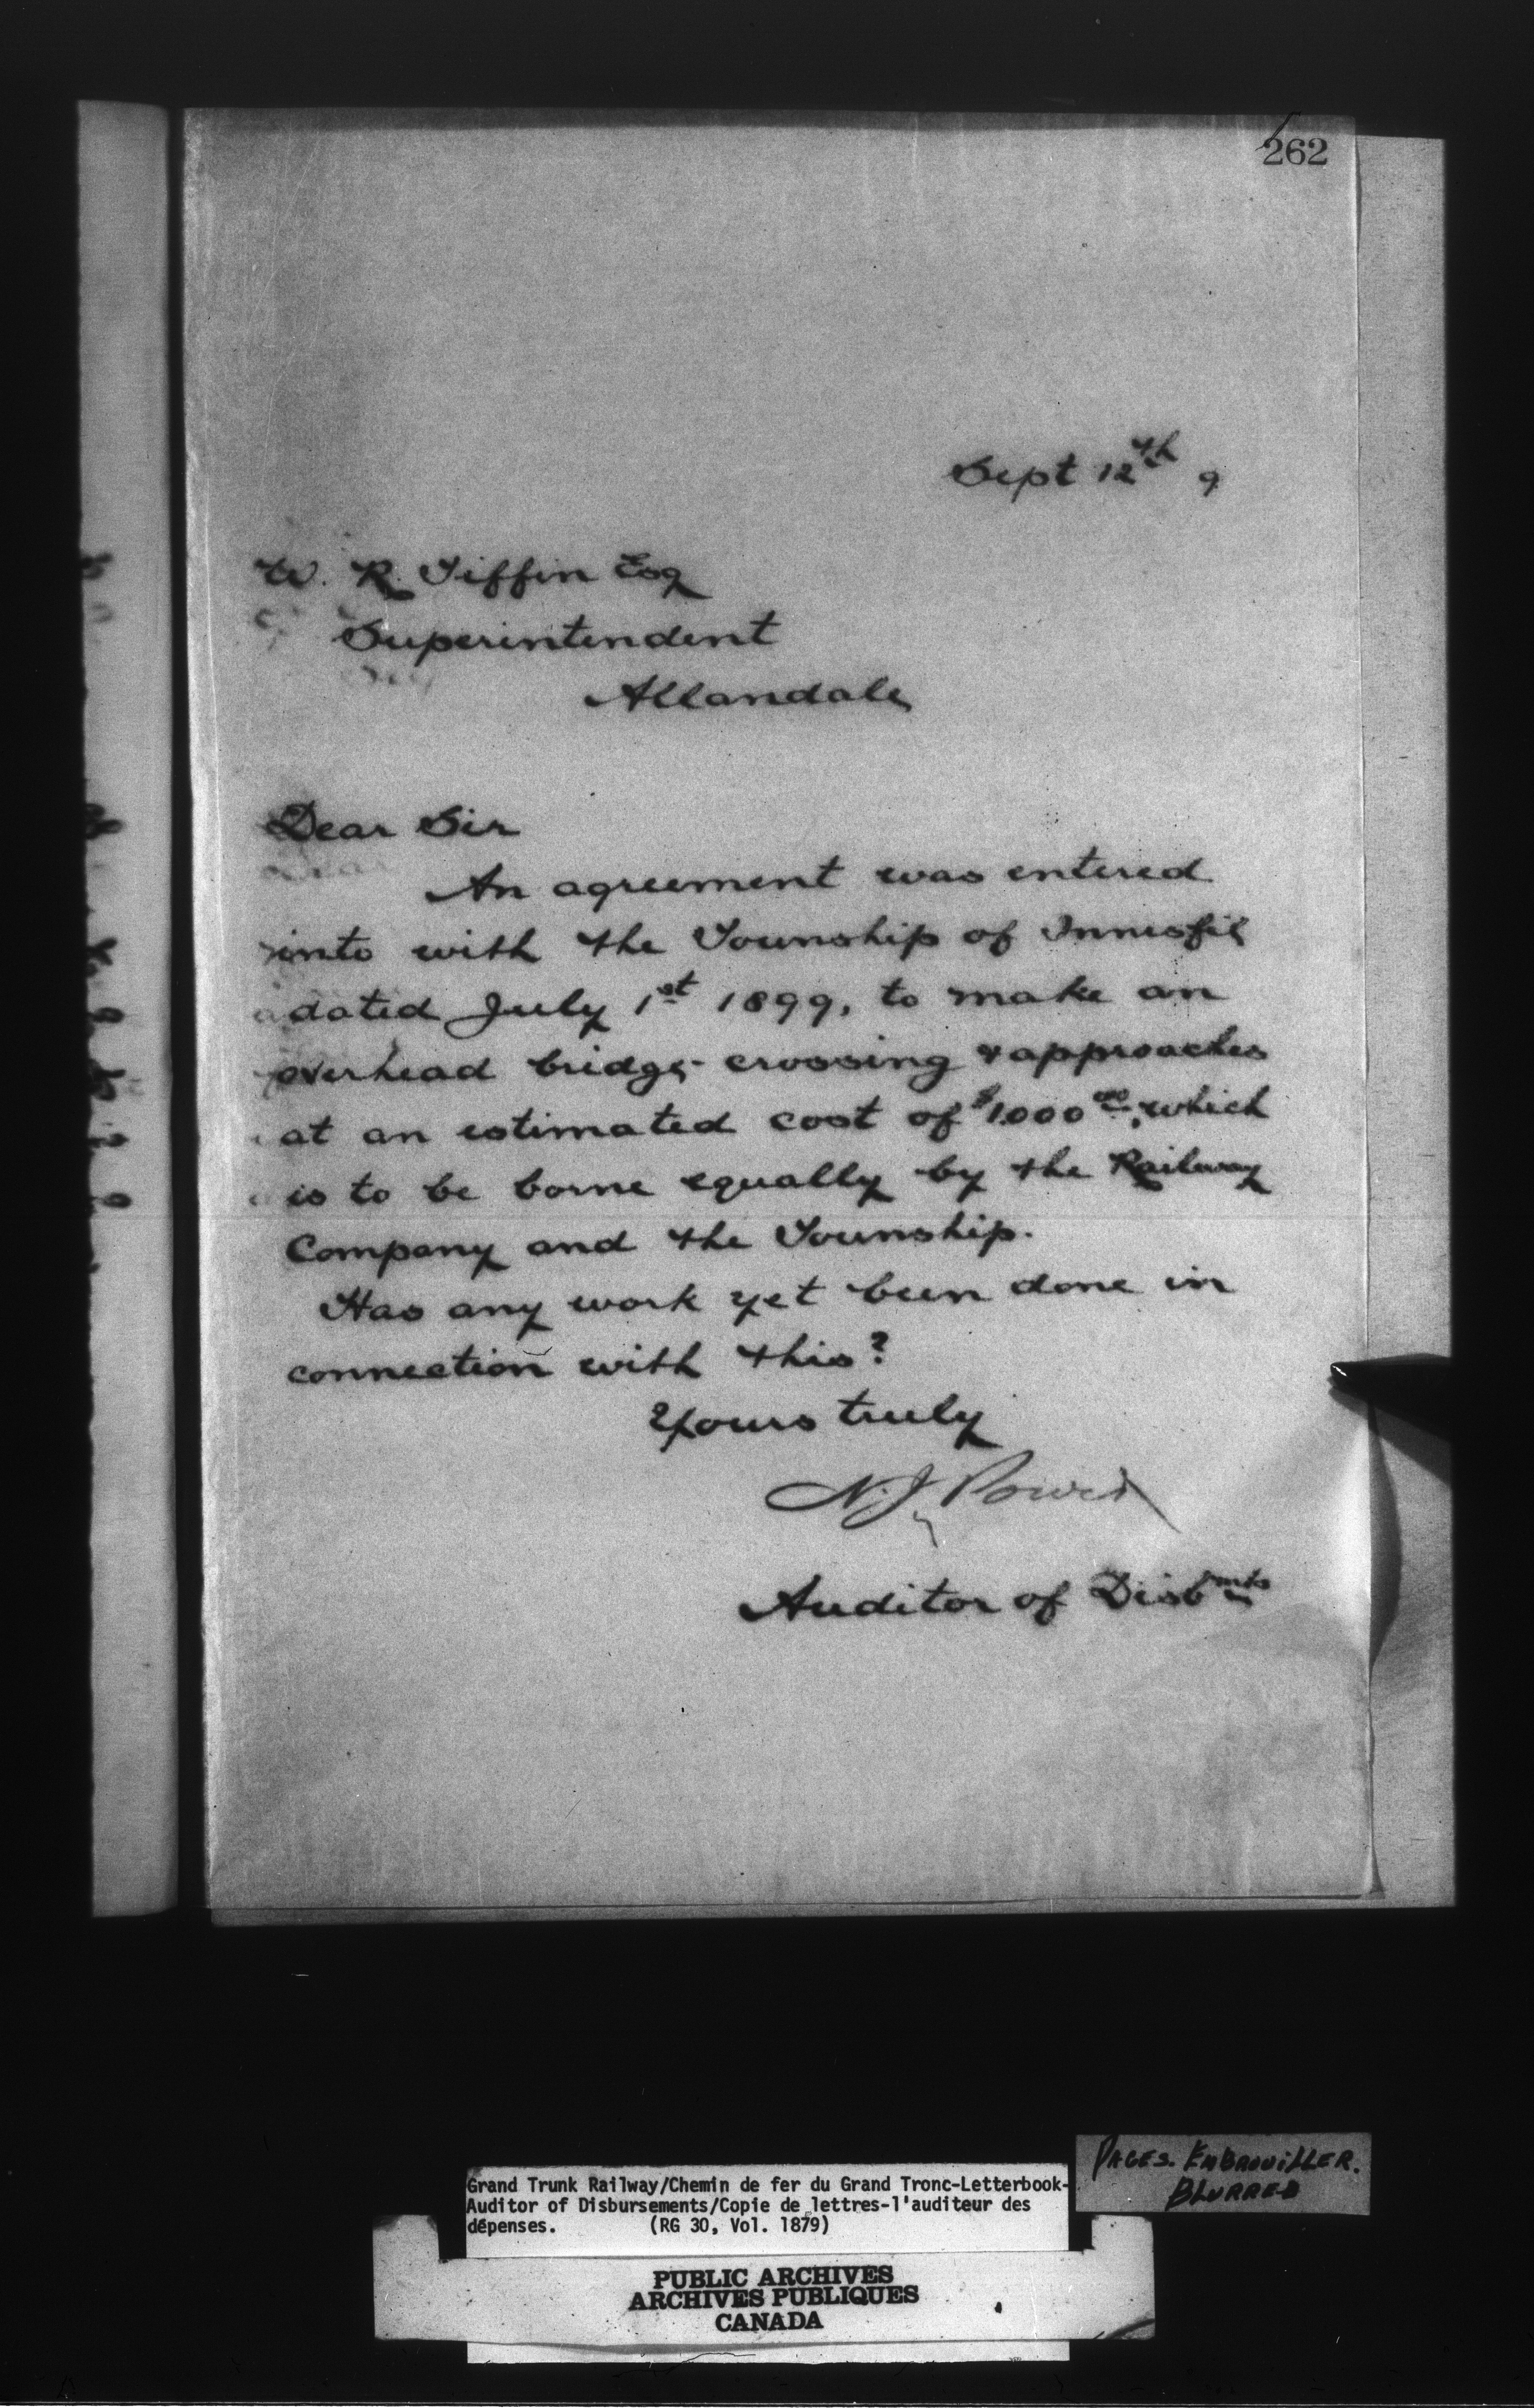 262
Sept 12th 9
W. R. Tiffin Esq
Superintendent
Allandale
Dear Sir
An agreement was entered
into with the Township of Innisfil
dated July 1st 1899, to make an
overhead bridge crossing & approaches
at an estimated cost of $1000 00, which
is to be borne equally by the Railway
Company and the Township.
Has any work yet been done in
connection with this?
Yours truly
N. J. Power
Auditor of Disbmts
PAGES. EMBROUILLER.
BLURRED
Grand Trunk Railway/Chemin de fer du Grand Tronc-Letterbook-
Auditor of Disbursements/Copie de lettres-l'auditeur des
dépenses. (RG 30, Vol. 1879)
PUBLIC ARCHIVES
ARCHIVES PUBLIQUES
CANADA